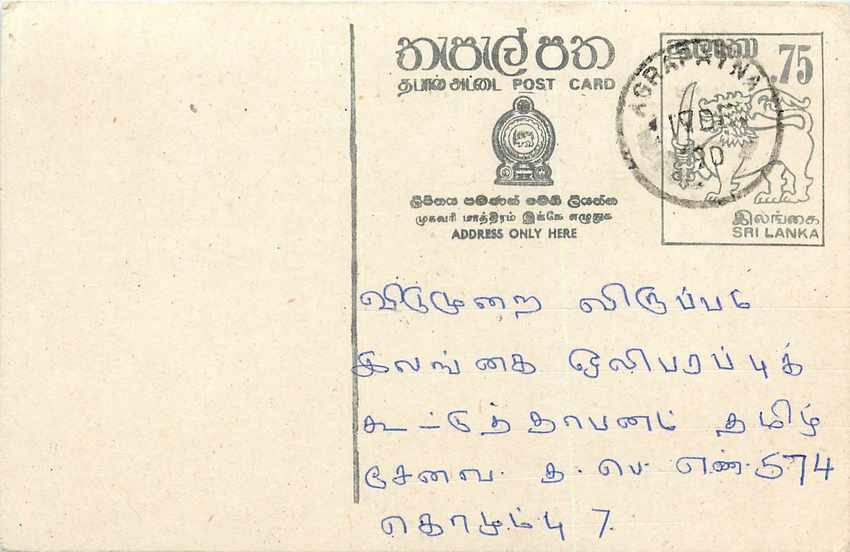 තැපැල් පත
தபால் அட்டை POST CARD
ලිපිනය පමණක් මෙහි ලියන්න
முகவரி மாத்திரம் இங்கே எழுதுக
ADDRESS ONLY HERE
ශ්‍රී ලංකා
.75
இலங்கை
SRI LANKA
AGRAPATNA
விடுமுறை விருப்பம்
இலங்கை ஒலிபரப்புத்
கூட்டுத்தாபனம் தமிழ்
சேவை. த. பெ. எண். 574
கொழும்பு 7.